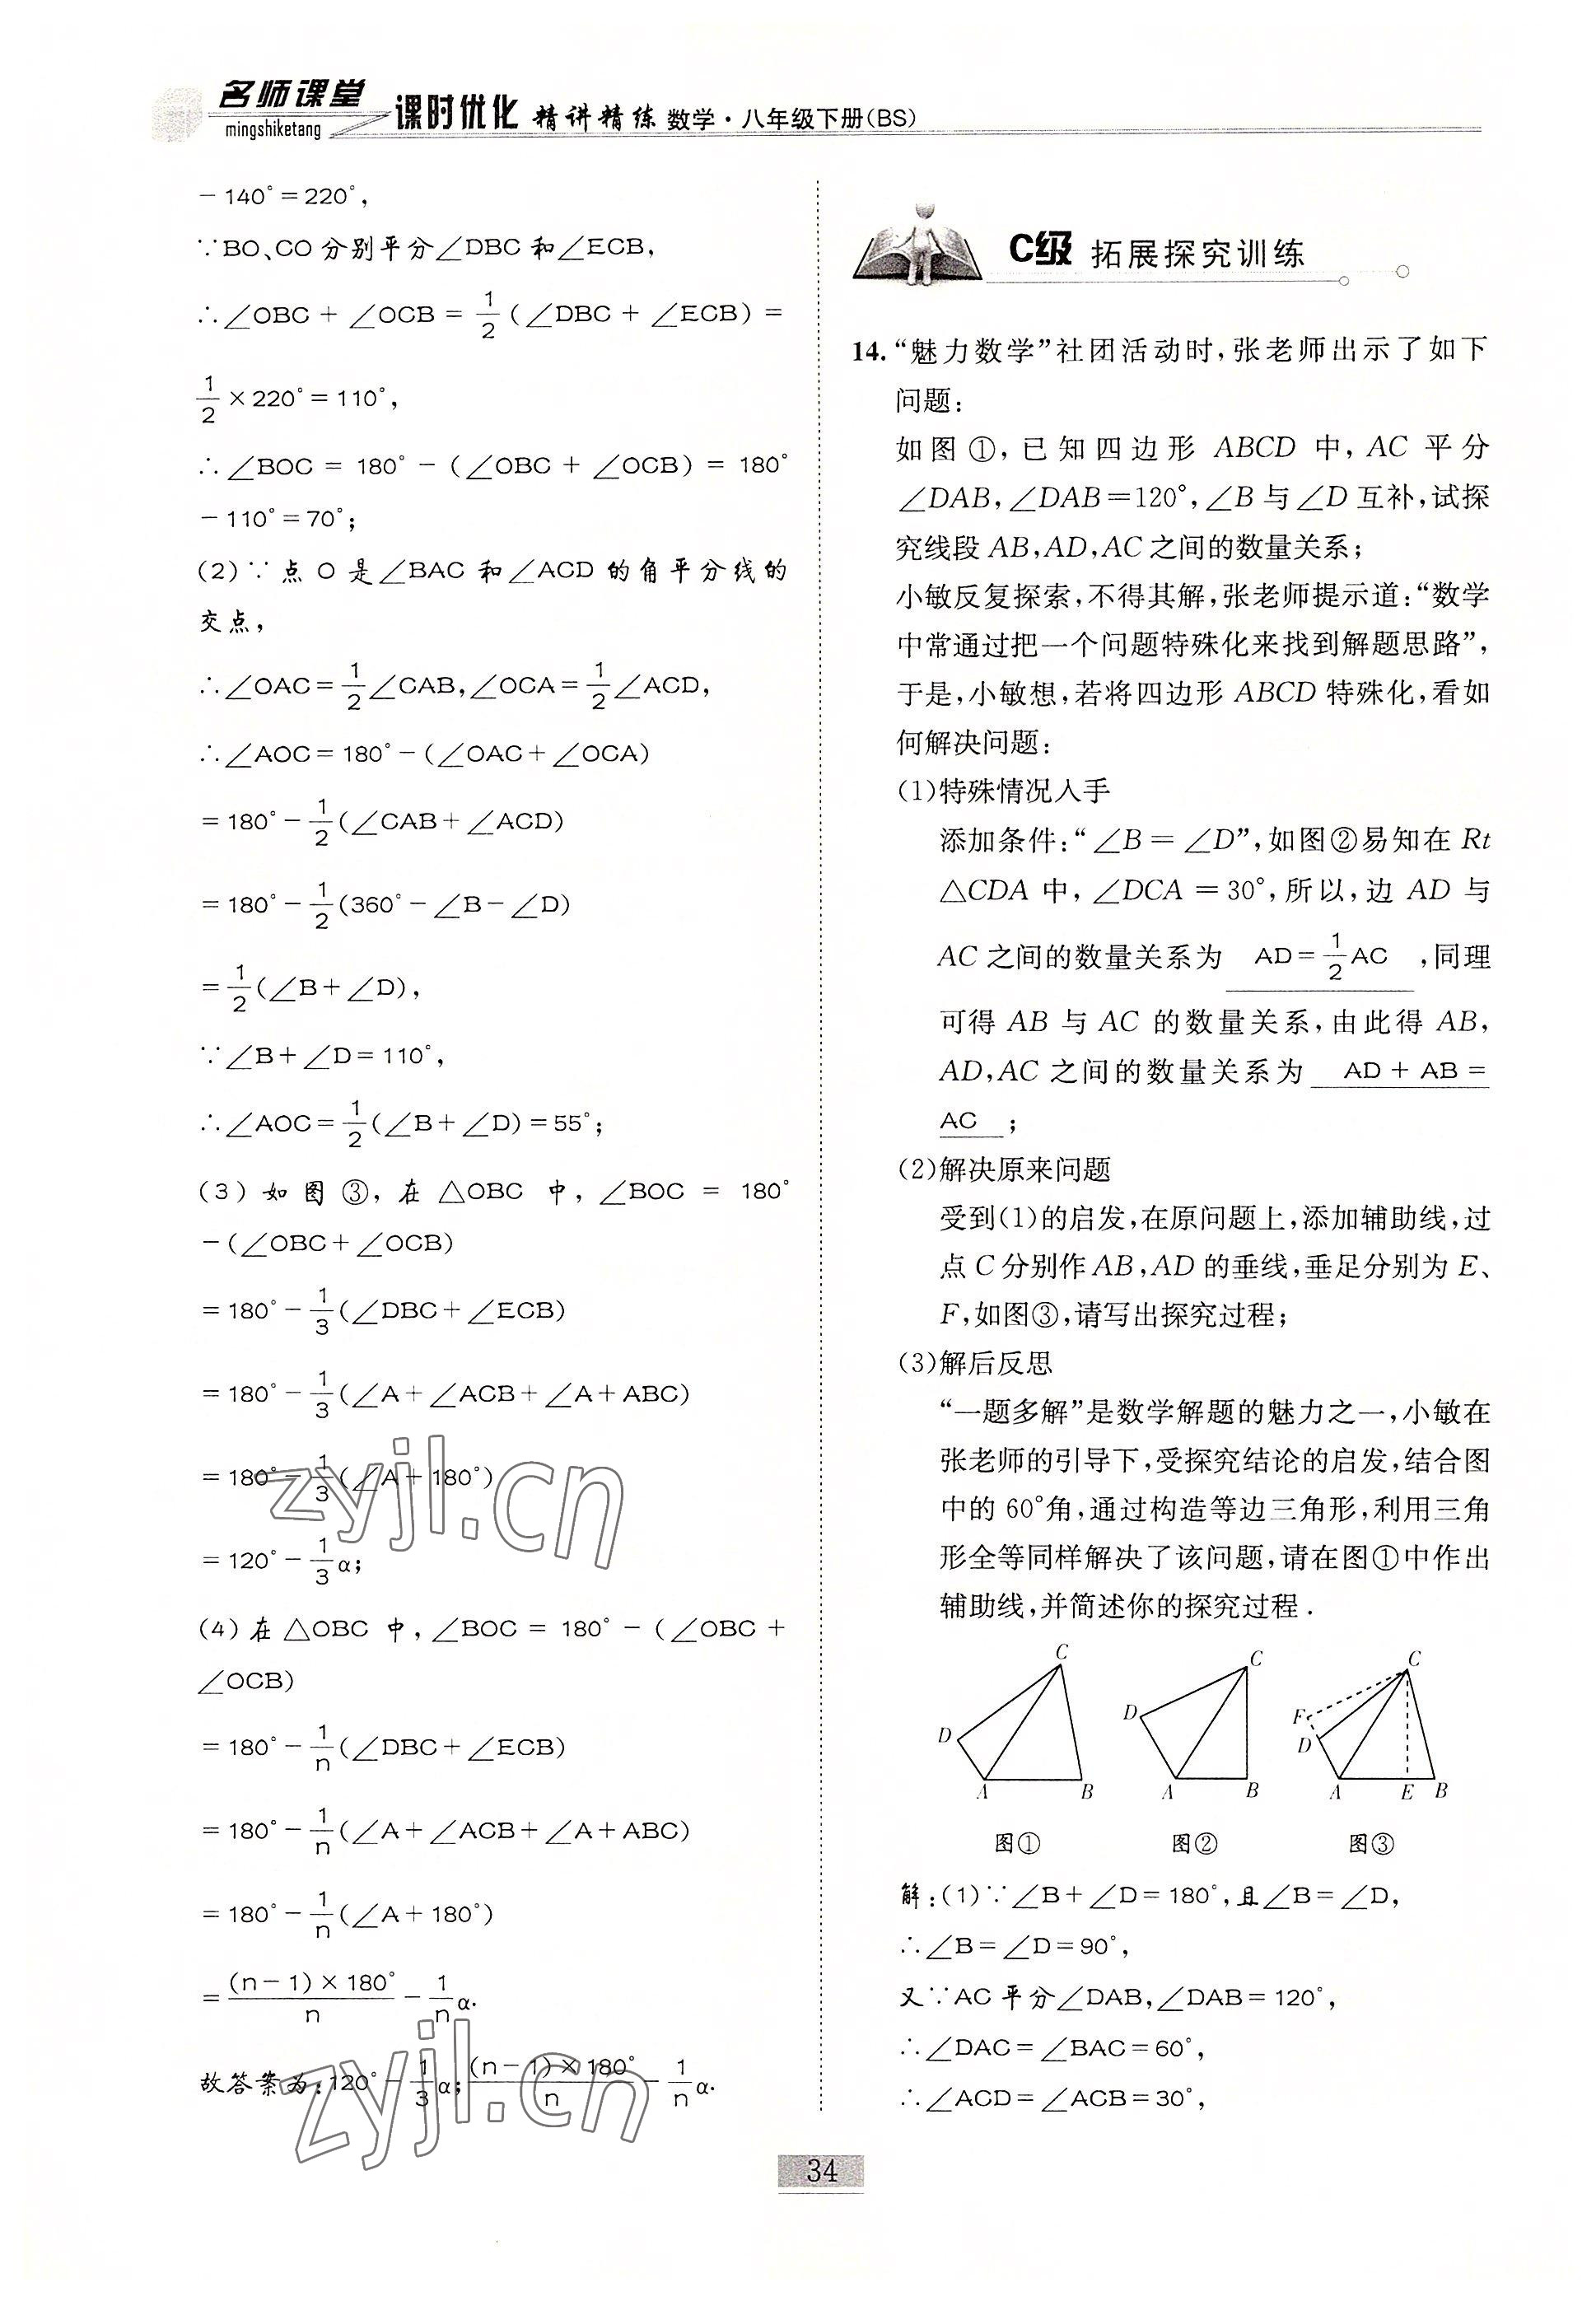 名师课堂
mingshiketang
课时优化 精讲精练 数学·八年级下册(BS)
－140°＝220°，
∵BO、CO 分别平分∠DBC 和∠ECB，
∴∠OBC＋∠OCB＝1/2（∠DBC＋∠ECB）＝
1/2×220°＝110°，
∴∠BOC＝180°－（∠OBC＋∠OCB）＝180°
－110°＝70°；
(2)∵点 O 是∠BAC 和∠ACD 的角平分线的
交点，
∴∠OAC＝1/2∠CAB，∠OCA＝1/2∠ACD，
∴∠AOC＝180°－(∠OAC＋∠OCA)
＝180°－1/2(∠CAB＋∠ACD)
＝180°－1/2(360°－∠B－∠D)
＝1/2(∠B＋∠D)，
∵∠B＋∠D＝110°，
∴∠AOC＝1/2(∠B＋∠D)＝55°；
(3)如图③，在△OBC 中，∠BOC＝180°
－(∠OBC＋∠OCB)
＝180°－1/3(∠DBC＋∠ECB)
＝180°－1/3(∠A＋∠ACB＋∠A＋ABC)
＝180°－1/3(∠A＋180°)
＝120°－1/3α；
(4)在△OBC 中，∠BOC＝180°－(∠OBC＋
∠OCB)
＝180°－1/n(∠DBC＋∠ECB)
＝180°－1/n(∠A＋∠ACB＋∠A＋ABC)
＝180°－1/n(∠A＋180°)
＝(n－1)×180°/n－1/nα.
故答案为：120°－1/3α；(n－1)×180°/n－1/nα.
C级 拓展探究训练
14.“魅力数学”社团活动时，张老师出示了如下
问题：
如图①，已知四边形 ABCD 中，AC 平分
∠DAB，∠DAB＝120°，∠B 与∠D 互补，试探
究线段 AB，AD，AC 之间的数量关系；
小敏反复探索，不得其解，张老师提示道：“数学
中常通过把一个问题特殊化来找到解题思路”，
于是，小敏想，若将四边形 ABCD 特殊化，看如
何解决问题：
(1)特殊情况入手
添加条件：“∠B＝∠D”，如图②易知在 Rt
△CDA 中，∠DCA＝30°，所以，边 AD 与
AC 之间的数量关系为 AD＝1/2AC ，同理
可得 AB 与 AC 的数量关系，由此得 AB，
AD，AC 之间的数量关系为 AD＋AB＝
AC ；
(2)解决原来问题
受到(1)的启发，在原问题上，添加辅助线，过
点 C 分别作 AB，AD 的垂线，垂足分别为 E、
F，如图③，请写出探究过程；
(3)解后反思
“一题多解”是数学解题的魅力之一，小敏在
张老师的引导下，受探究结论的启发，结合图
中的 60°角，通过构造等边三角形，利用三角
形全等同样解决了该问题，请在图①中作出
辅助线，并简述你的探究过程.
C D A B
C D A B
C F D A E B
图① 图② 图③
解：(1)∵∠B＋∠D＝180°，且∠B＝∠D，
∴∠B＝∠D＝90°，
又∵AC 平分∠DAB，∠DAB＝120°，
∴∠DAC＝∠BAC＝60°，
∴∠ACD＝∠ACB＝30°，
zyjl.cn
zyjl.cn
34